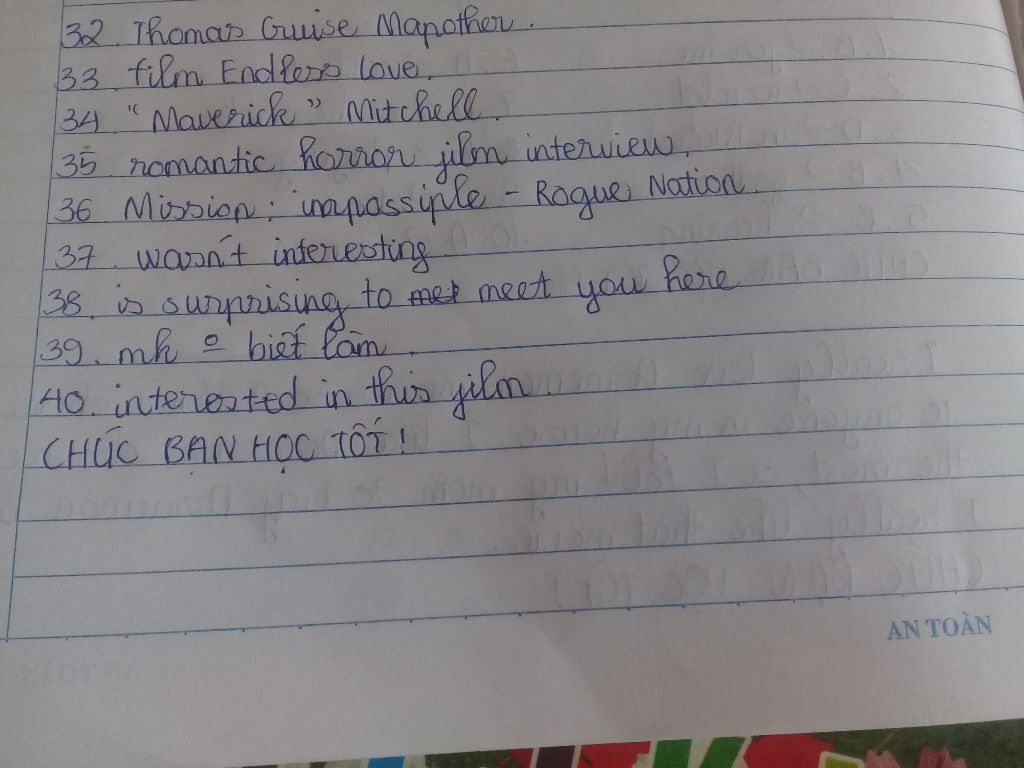 32. Thomas Cruise Mapother.
33. film Endless Love.
34. "Maverick" Mitchell.
35. romantic horror film interview.
36. Mission: impassiple - Rogue Nation.
37. wasn't interesting
38. is surprising to meet you here
39. mk = biết làm.
40. interested in this film.
CHÚC BẠN HỌC TỐT!
AN TOÀN